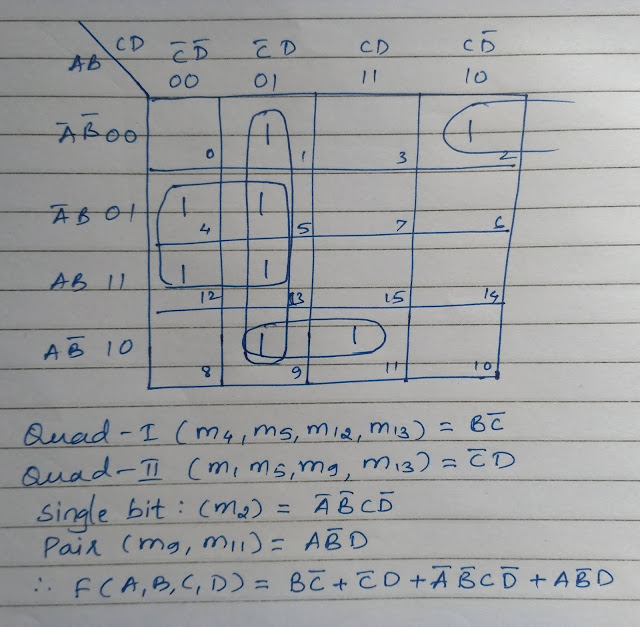 CD C̅D̅ C̅D CD CD̅
AB 00 01 11 10
A̅B̅ 00 1 1
0 1 3 2
A̅B 01 1 1
4 5 7 6
AB 11 1 1
12 13 15 14
AB̅ 10 1 1
8 9 11 10
Quad-I (m4, m5, m12, m13) = BC̅
Quad-II (m1 m5, m9, m13) = C̅D
Single bit : (m2) = A̅B̅CD̅
Pair (m9, m11) = AB̅D
∴ F(A,B,C,D) = BC̅ + C̅D + A̅B̅CD̅ + AB̅D